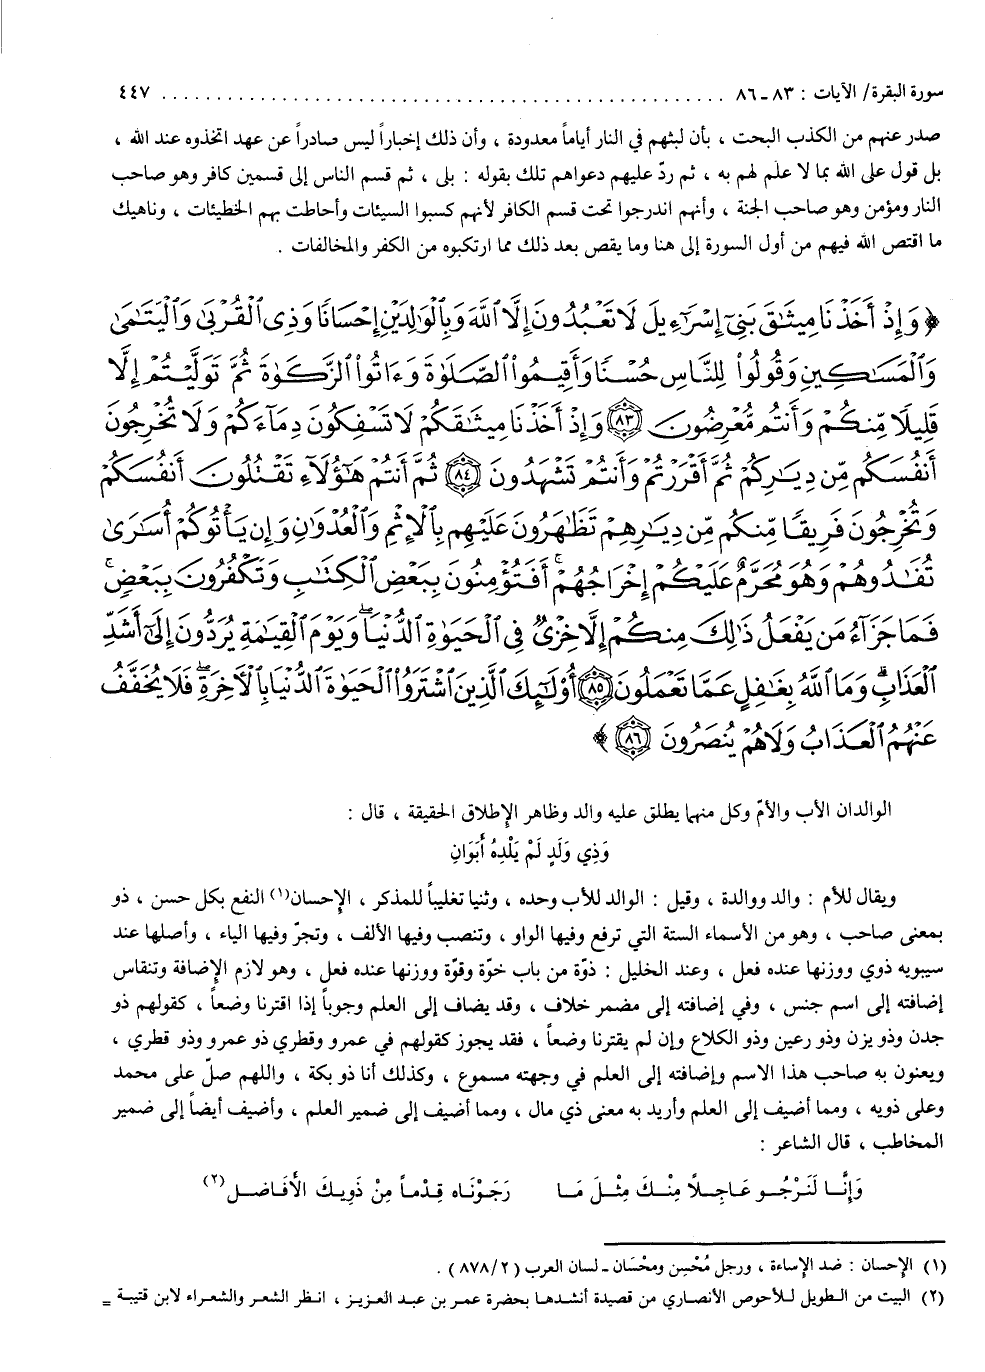 سورة البقرة/ الآيات : ٨٣ـ٨٦ ............................................................ ٤٤٧
صدر عنهم من الكذب البحت ، بأن لبثهم في النار أياماً معدودة ، وأن ذلك إخباراً ليس صادراً عن عهد اتخذوه عند الله ،
بل قول على الله بما لا علم لهم به ، ثم ردّ عليهم دعواهم تلك بقوله : بلى ، ثم قسم الناس إلى قسمين كافر وهو صاحب
النار ومؤمن وهو صاحب الجنة ، وأنهم اندرجوا تحت قسم الكافر لأنهم كسبوا السيئات وأحاطت بهم الخطيئات ، وناهيك
ما اقتص الله فيهم من أول السورة إلى هنا وما يقص بعد ذلك مما ارتكبوه من الكفر والمخالفات .
﴿ وَإِذْ أَخَذْنَا مِيثَٰقَ بَنِىٓ إِسْرَٰٓءِيلَ لَا تَعْبُدُونَ إِلَّا ٱللَّهَ وَبِٱلْوَٰلِدَيْنِ إِحْسَانًا وَذِى ٱلْقُرْبَىٰ وَٱلْيَتَٰمَىٰ
وَٱلْمَسَٰكِينِ وَقُولُوا۟ لِلنَّاسِ حُسْنًا وَأَقِيمُوا۟ ٱلصَّلَوٰةَ وَءَاتُوا۟ ٱلزَّكَوٰةَ ثُمَّ تَوَلَّيْتُمْ إِلَّا
قَلِيلًا مِّنكُمْ وَأَنتُم مُّعْرِضُونَ ﴿٨٣﴾ وَإِذْ أَخَذْنَا مِيثَٰقَكُمْ لَا تَسْفِكُونَ دِمَآءَكُمْ وَلَا تُخْرِجُونَ
أَنفُسَكُم مِّن دِيَٰرِكُمْ ثُمَّ أَقْرَرْتُمْ وَأَنتُمْ تَشْهَدُونَ ﴿٨٤﴾ ثُمَّ أَنتُمْ هَٰٓؤُلَآءِ تَقْتُلُونَ أَنفُسَكُمْ
وَتُخْرِجُونَ فَرِيقًا مِّنكُم مِّن دِيَٰرِهِمْ تَظَٰهَرُونَ عَلَيْهِم بِٱلْإِثْمِ وَٱلْعُدْوَٰنِ وَإِن يَأْتُوكُمْ أُسَٰرَىٰ
تُفَٰدُوهُمْ وَهُوَ مُحَرَّمٌ عَلَيْكُمْ إِخْرَاجُهُمْ ۚ أَفَتُؤْمِنُونَ بِبَعْضِ ٱلْكِتَٰبِ وَتَكْفُرُونَ بِبَعْضٍ ۚ
فَمَا جَزَآءُ مَن يَفْعَلُ ذَٰلِكَ مِنكُمْ إِلَّا خِزْىٌ فِى ٱلْحَيَوٰةِ ٱلدُّنْيَا ۖ وَيَوْمَ ٱلْقِيَٰمَةِ يُرَدُّونَ إِلَىٰٓ أَشَدِّ
ٱلْعَذَابِ ۗ وَمَا ٱللَّهُ بِغَٰفِلٍ عَمَّا تَعْمَلُونَ ﴿٨٥﴾ أُو۟لَٰٓئِكَ ٱلَّذِينَ ٱشْتَرَوُا۟ ٱلْحَيَوٰةَ ٱلدُّنْيَا بِٱلْأَخِرَةِ ۖ فَلَا يُخَفَّفُ
عَنْهُمُ ٱلْعَذَابُ وَلَا هُمْ يُنصَرُونَ ﴿٨٦﴾ ﴾
الوالدان الأب والأمّ وكل منهما يطلق عليه والد وظاهر الإطلاق الحقيقة ، قال :
وَذِي وَلَدٍ لَمْ يَلْدَهُ أَبَوَانِ
ويقال للأم : والد ووالدة ، وقيل : الوالد للأب وحده ، وثنيا تغليباً للمذكر ، الإحسان(١) النفع بكل حسن ، ذو
بمعنى صاحب ، وهو من الأسماء الستة التي ترفع وفيها الواو ، وتنصب وفيها الألف ، وتجرّ وفيها الياء ، وأصلها عند
سيبويه ذوي ووزنها عنده فعل ، وعند الخليل : ذوّة من باب خوّة وقوّة ووزنها عنده فعل ، وهو لازم الإضافة وتنقاس
إضافته إلى اسم جنس ، وفي إضافته إلى مضمر خلاف ، وقد يضاف إلى العلم وجوباً إذا اقترنا وضعاً ، كقولهم ذو
جدن وذو يزن وذو رعين وذو الكلاع وإن لم يقترنا وضعاً ، فقد يجوز كقولهم في عمرو وقطري ذو عمرو وذو قطري ،
ويعنون به صاحب هذا الاسم وإضافته إلى العلم في وجهته مسموع ، وكذلك أنا ذو بكة ، واللهم صلّ على محمد
وعلى ذويه ، ومما أضيف إلى العلم وأريد به معنى ذي مال ، ومما أضيف إلى ضمير العلم ، وأضيف أيضاً إلى ضمير
المخاطب ، قال الشاعر :
وَإِنَّـا لَنَرْجُـو عَـاجِـلًا مِنْـكَ مِثْـلَ مَـا رَجَوْنَـاه قِدْمـاً مِنْ ذَوِيـكَ الأَفَاضِـل(٢)
(١) الإحسان : ضد الإساءة ، ورجل مُحْسِن ومحْسَان ـ لسان العرب (٨٧٨/٢) .
(٢) البيت من الطويل للأحوص الأنصاري من قصيدة أنشدها بحضرة عمر بن عبد العزيز ، انظر الشعر والشعراء لابن قتيبة =